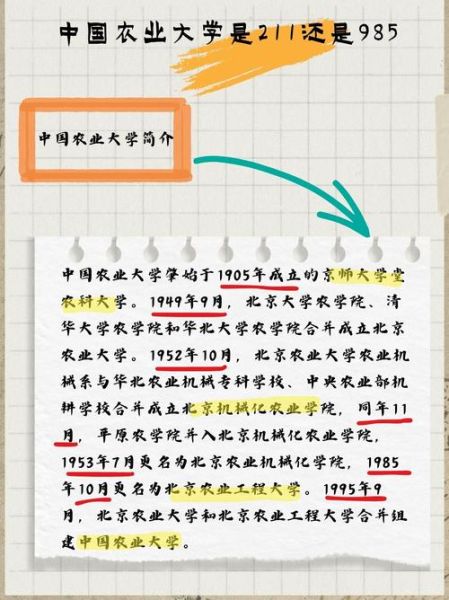 中国农业大学是211还是985
中国农业大学简介
中国农业大学肇始于1905年成立的京师大学堂
农科大学。1949年9月，北京大学农学院、清
华大学农学院和华北大学农学院合并成立北京
农业大学。1952年10月，北京农业大学农业机
械系与华北农业机械专科学校、中央农业部机
耕学校合并成立北京机械化农业学院，同年11
月，平原农学院并入北京机械化农业学院，
1953年7月更名为北京农业机械化学院，1985
年10月更名为北京农业工程大学。1995年9
月，北京农业大学和北京农业工程大学合并组
建中国农业大学。